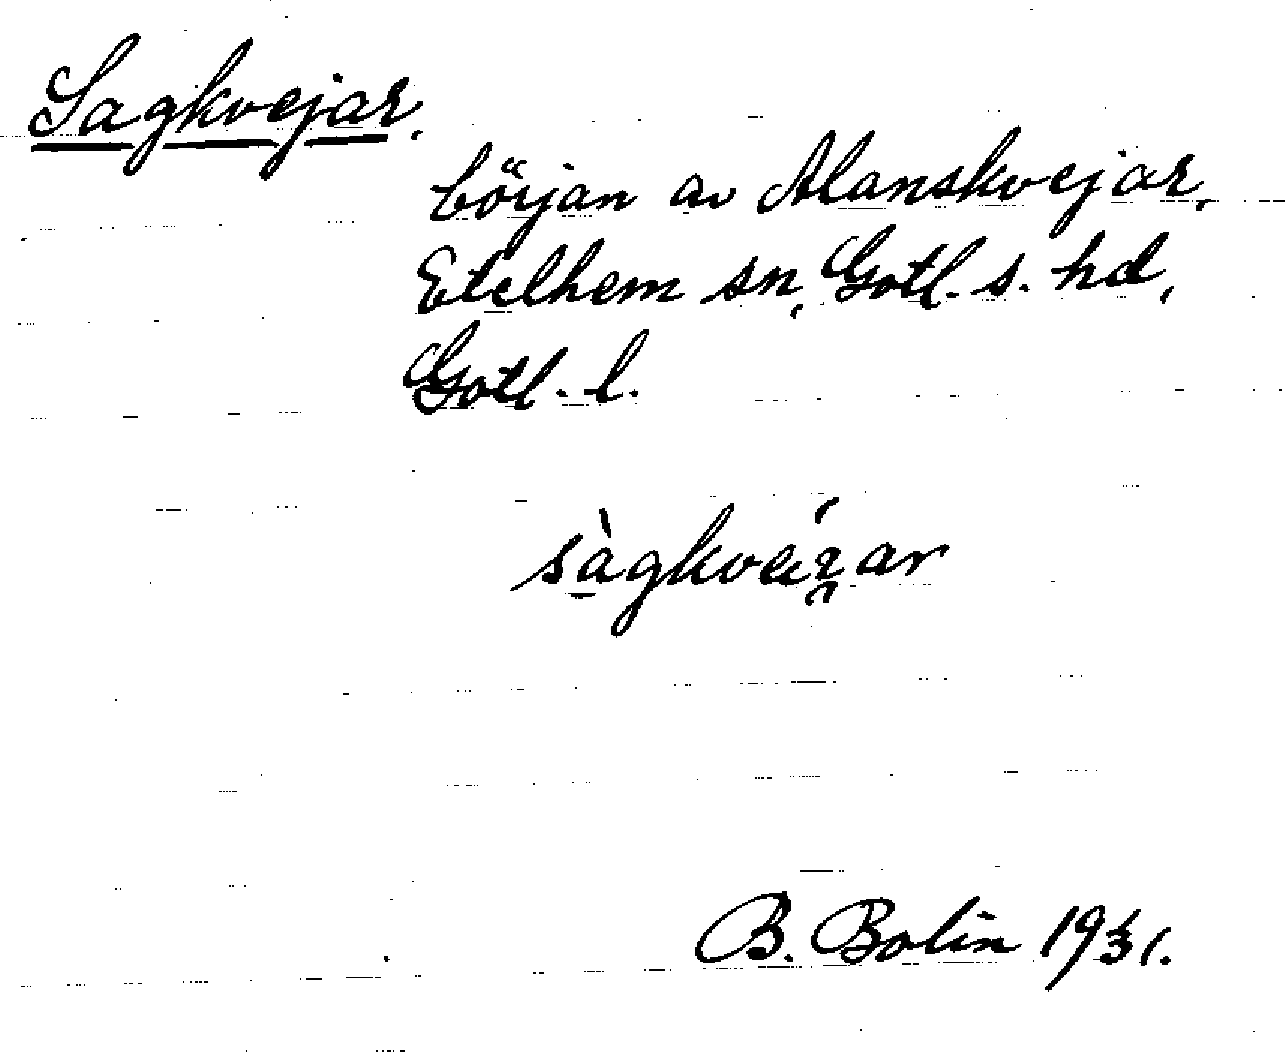 Sagkvejar,
början av Alanskvejar,
Etelhem sn, Gotl. s. hd,
Gotl. l.
sàgkveiʒar
B. Bolin 1931.